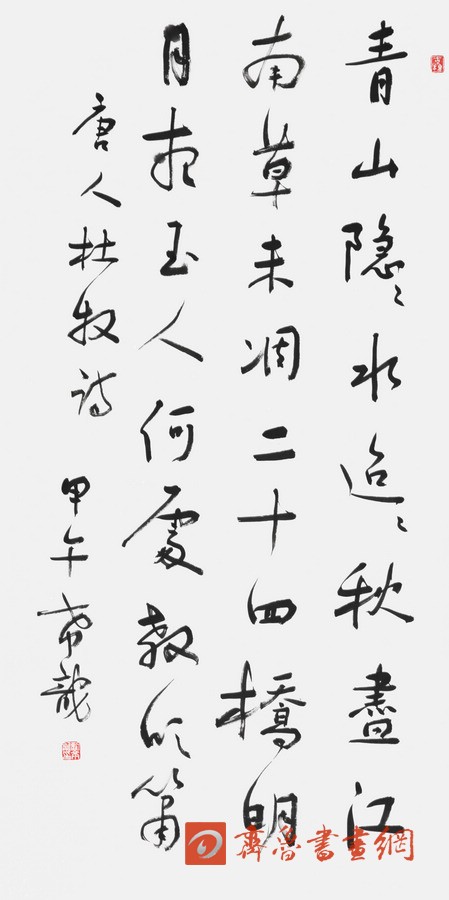 青山隐〻水迢〻秋盡江
南草未凋二十四橋明
月夜玉人何處教吹簫
唐人杜牧詩 甲午希龍
齊魯書畫網